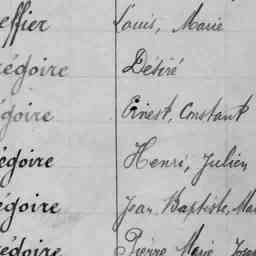 effier Louis, Marie
égoire Désiré
égoire Ernest, Constant
égoire Henri, Julien
égoire Jean, Baptiste, Mar
égoire Pierre, Marie, Jose